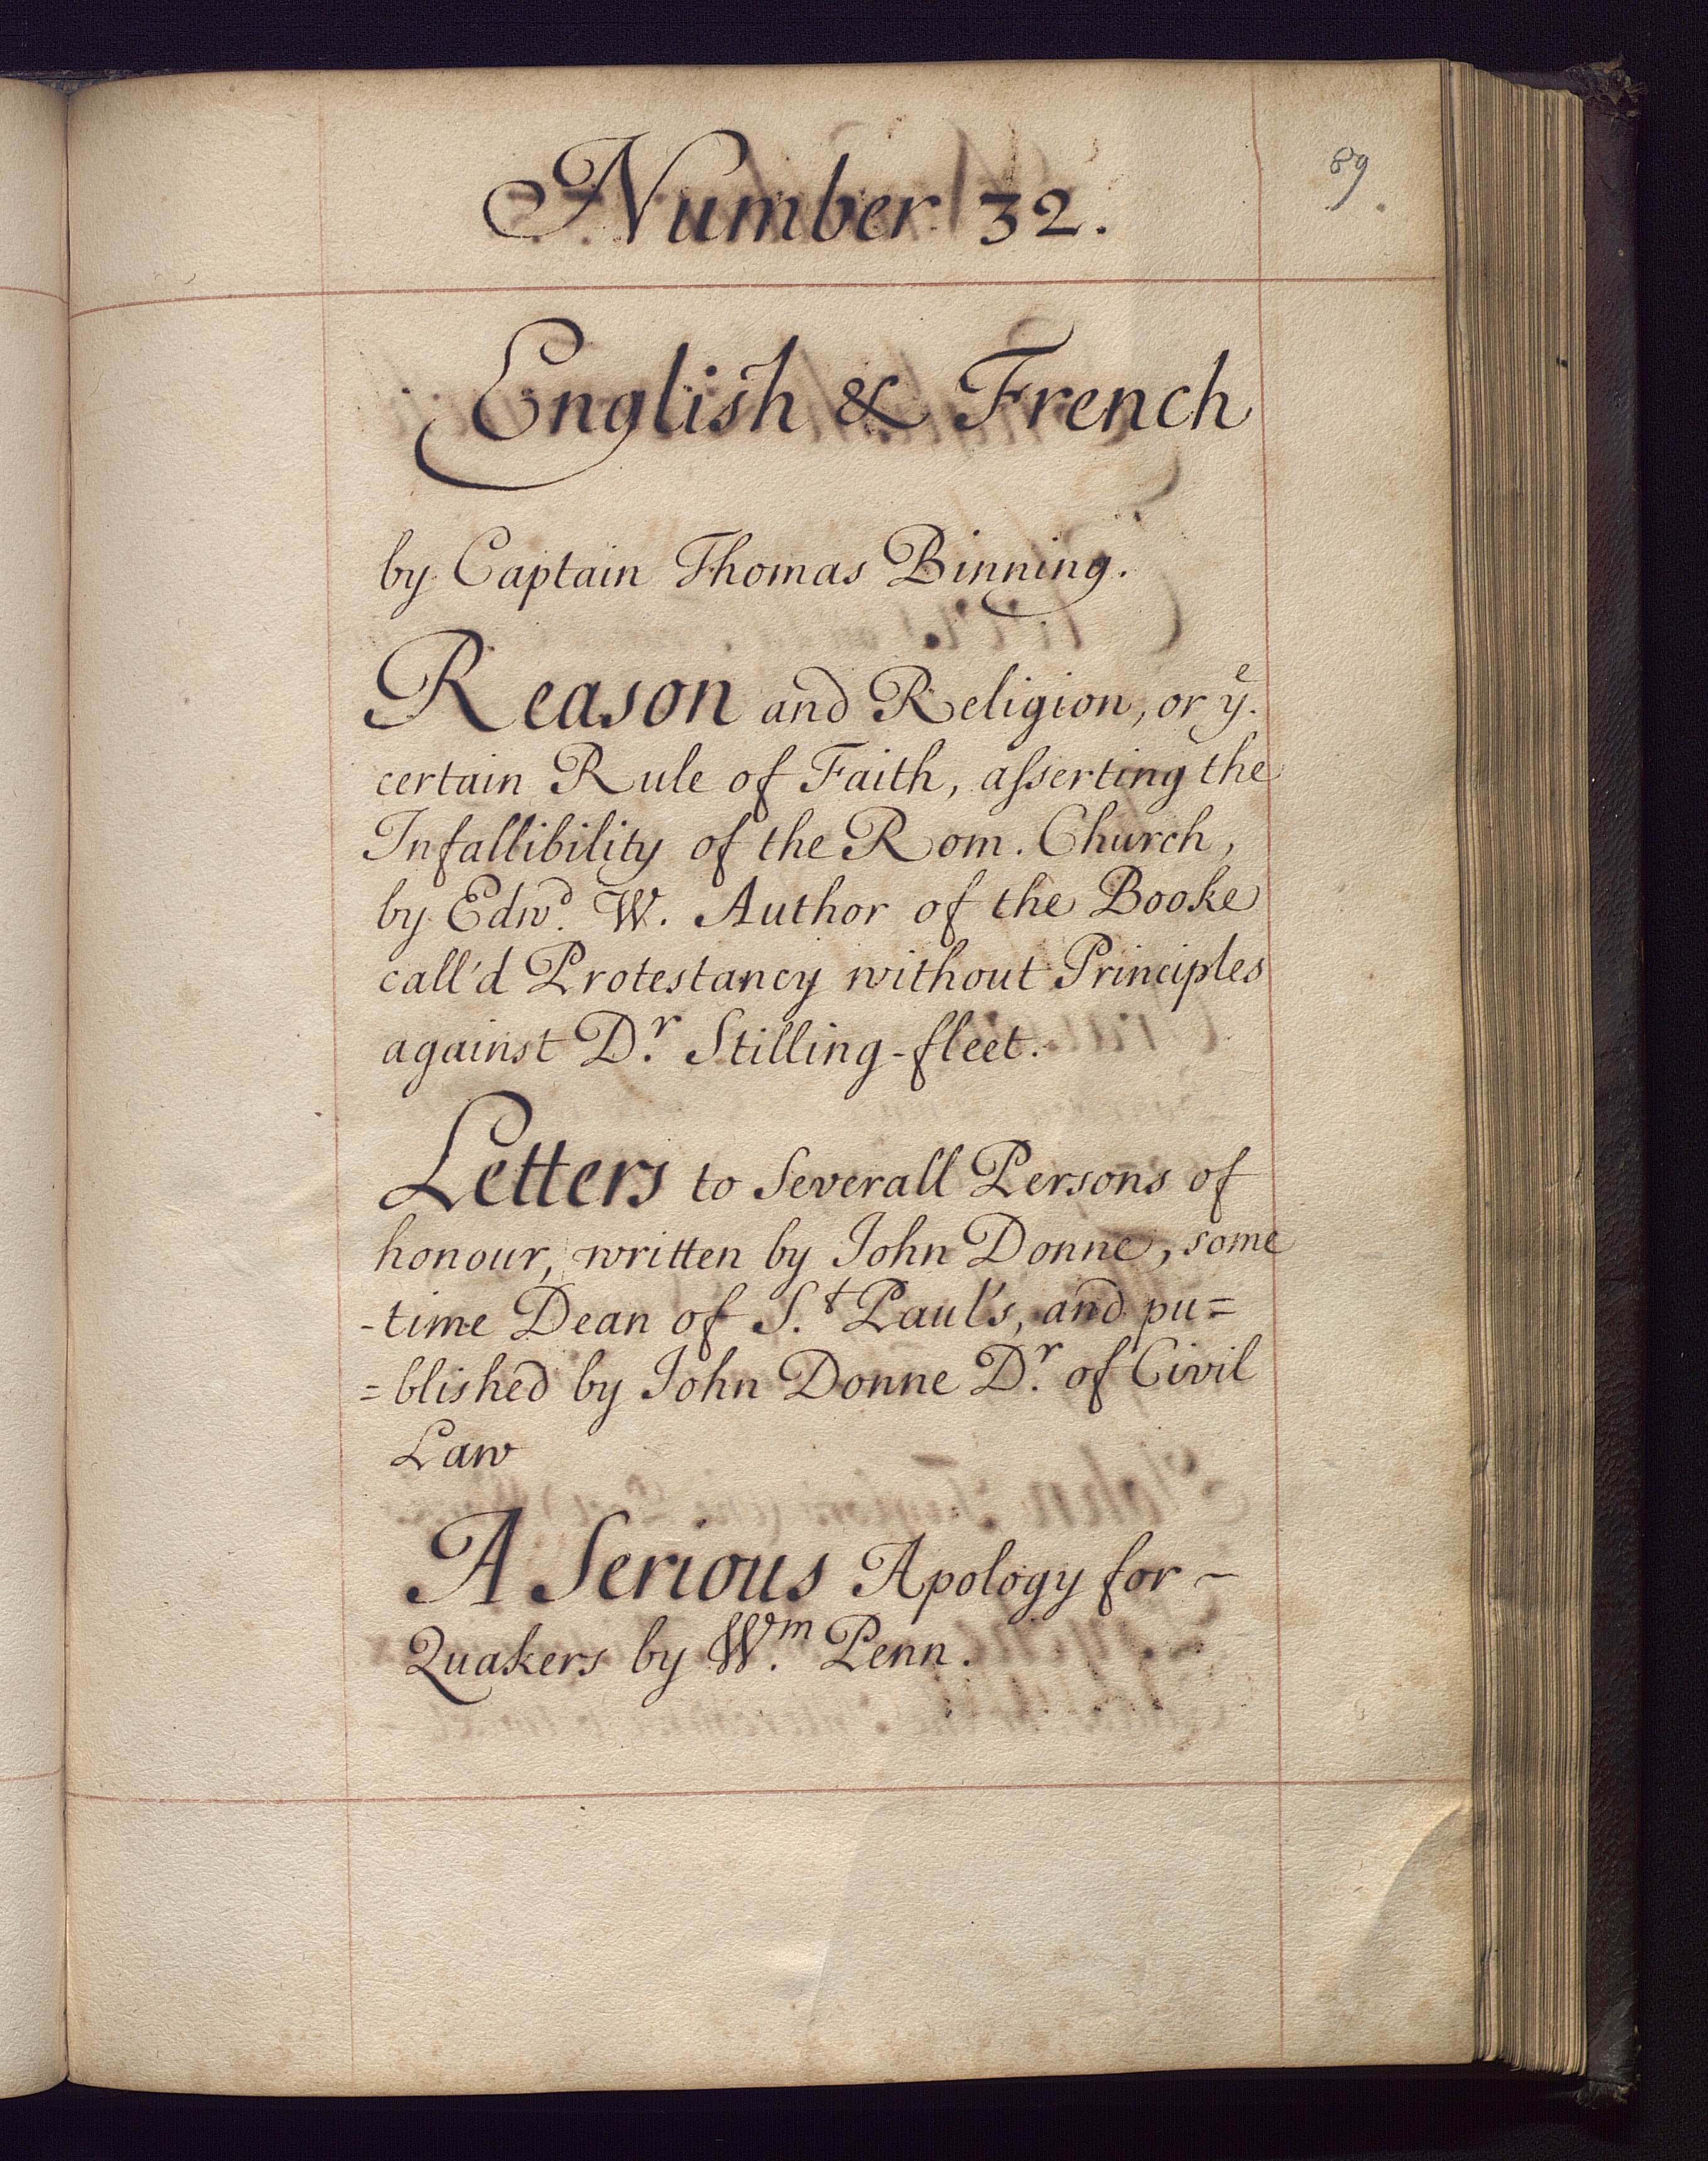 Number 32.
89
English & French
by Captain Thomas Binning.
Reason and Religion, or yᵉ.
certain Rule of Faith, aſserting the
Infallibility of the Rom. Church,
by Edwᵈ. W. Author of the Booke
call'd Protestancy without Principles
against Dʳ. Stilling-fleet.
Letters to Severall Persons of
honour, written by John Donne, some
-time Dean of S.ᵗ Paul's, and pu=
=blished by John Donne Dʳ. of Civil
Law
A Serious Apology for ~
Quakers by Wᵐ. Penn.